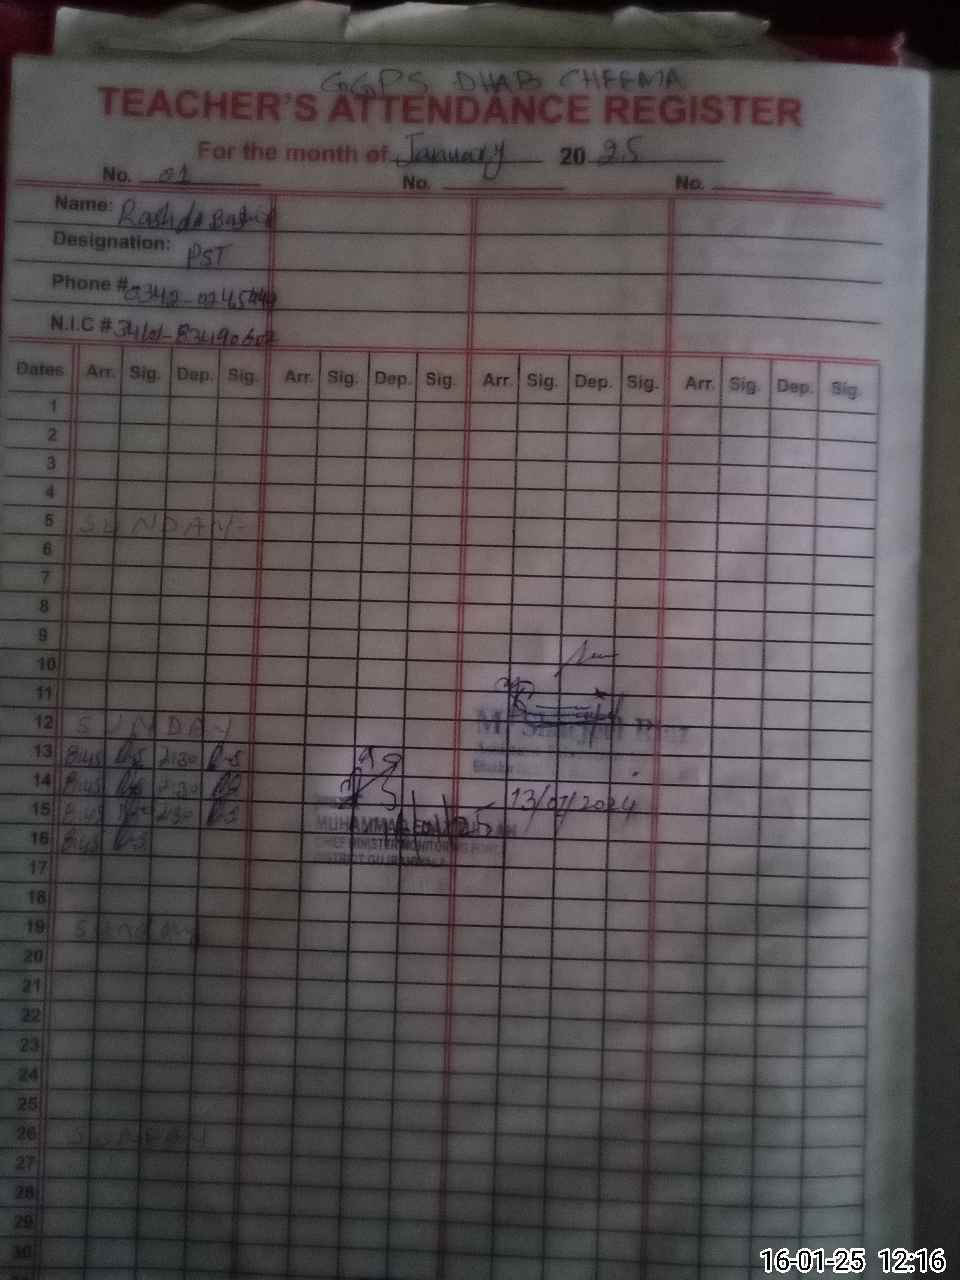 GGPS DHAB CHEEMA
TEACHER'S ATTENDANCE REGISTER
For the month of January 2025
No. 01 No. No.
Name: Rashda Bashir
Designation: PST
Phone #
N.I.C #
Dates Arr. Sig. Dep. Sig. Arr. Sig. Dep. Sig. Arr. Sig. Dep. Sig. Arr. Sig. Dep. Sig.
1
2
3
4
5 SUNDAY
6
7
8
9
10
11
12 SUNDAY
13 8:45 2:30
14 8:45 2:30
15 8:45 2:30 13/01/2024
16 8:45 MUHAMMAD
CHIEF MINISTER MONITORING FORCE
DISTRICT
17
18
19 Sunday
20
21
22
23
24
25
26 SUNDAY
27
28
29
30
16-01-25 12:16